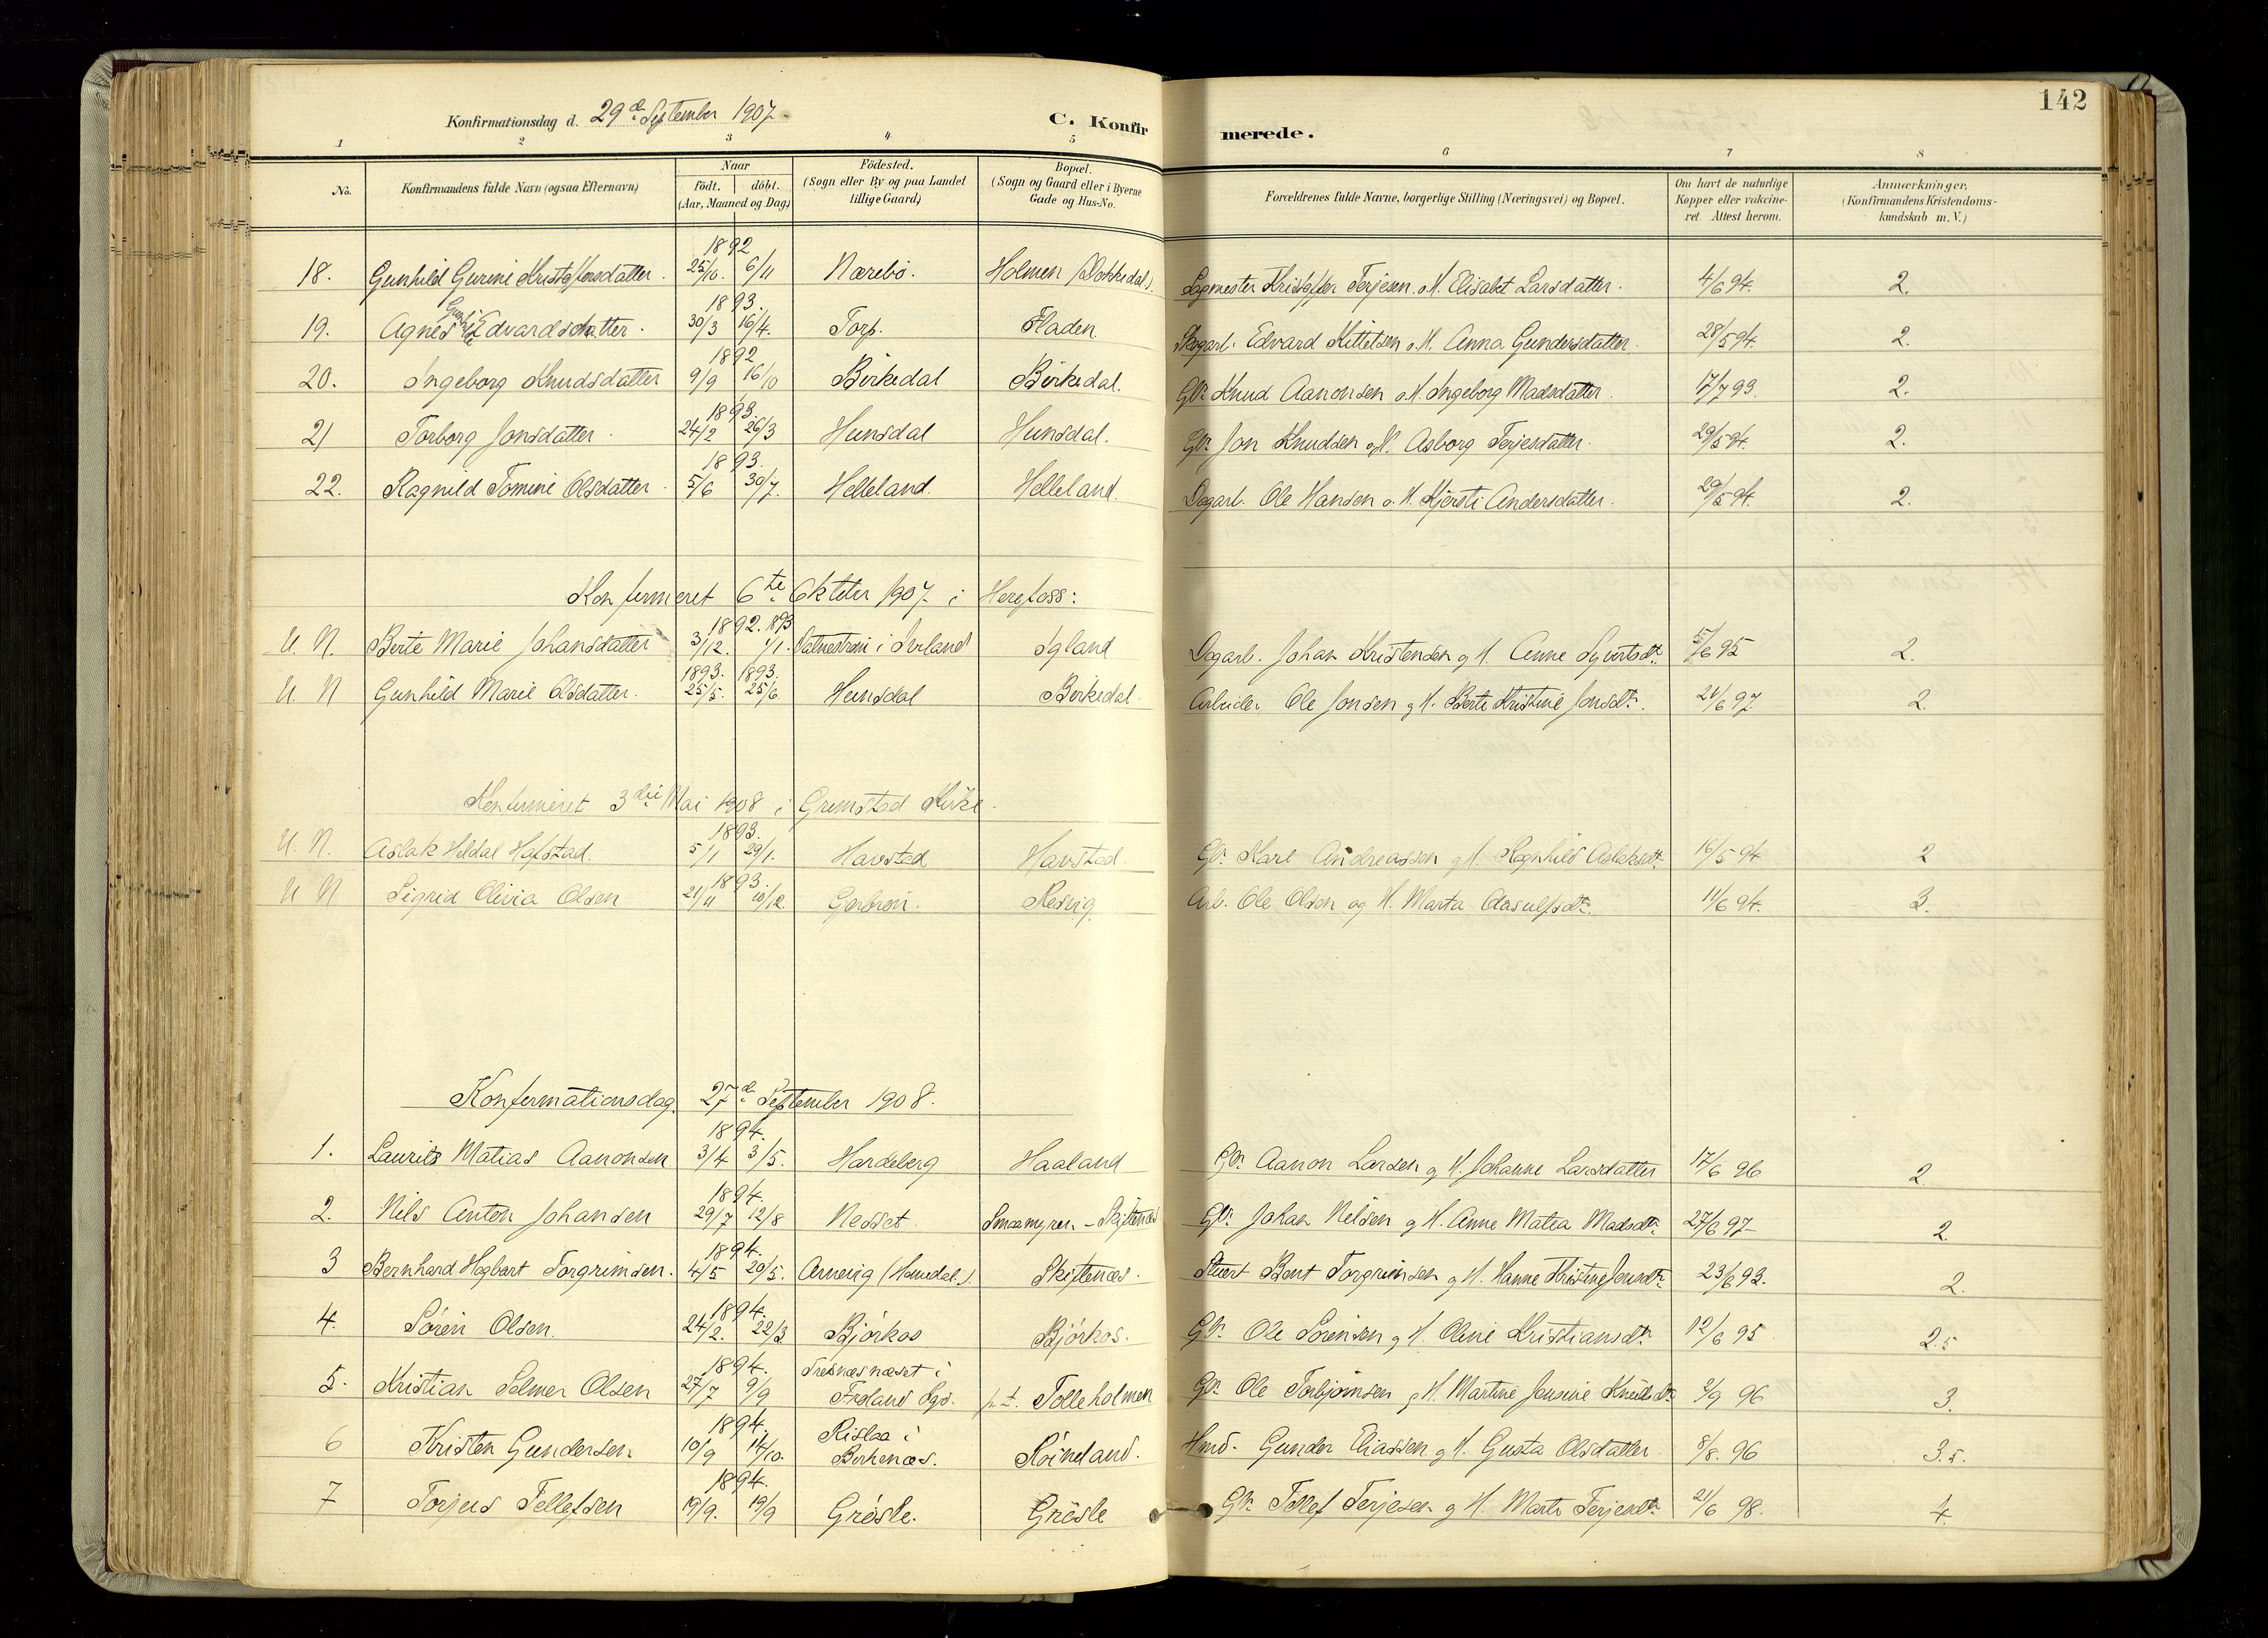 142
Konfirmationsdag d. 29de September 1907. C. Konfirmerede.
1 2 3 4 5 6 7 8
No. Konfirmandens fulde Navn (ogsaa Efternavn) Naar födt. döbt. (Aar, Maaned og Dag) Födested. (Sogn eller By og paa Landet tillige Gaard) Bopæl. (Sogn og Gaard eller i Byerne Gade og Hus-No. Forældrenes fulde Navne, borgerlige Stilling (Næringsvei) og Bopæl. Om havt de naturlige Kopper eller vakcineret. Attest herom. Anmærkninger, (Konfirmandens Kristendomskundskab m. V.)
1892
18. Gunhild Gurine Kristoffersdatter. 25/10. 6/11 Nærebö. Holmen Sagmester Kristoffer Terjesen o. H. Elisabet Larsdatter. 4/6 94. 2.
1893.
19. Agnes Edvardsdatter. 30/3 16/4. Torp. Fladen. Skogarb. Edvard Kittelsen o. H. Anna Gundersdatter 28/5 94. 2.
1892
20. Ingeborg Knudsdatter 9/9 16/10 Birkedal Birkedal. Gbr. Knud Aanonsen o. H. Ingeborg Madsdatter. 17/7 93. 2.
1893.
21 Torborg Jonsdatter. 24/2 26/3 Hunsdal Hunsdal. Gbr. Jon Knudsen o. H. Asborg Terjesdatter. 29/5 94. 2.
1893.
22. Ragnild Tomine Olsdatter. 5/6 30/7. Helleland. Helleland. Dagarb. Ole Hansen o. H. Kjersti Andersdatter. 29/5 94. 2.
Konfirmeret 6te Oktober 1907 i Herefoss:
1892. 1893
U. N. Berte Marie Johansdatter 3/12. 1/1. i Igland Dagarb. Johan Kristensen og H. Anne Sjurtsdtr. 5/6 95 2.
1893. 1893.
U. N Gunhild Marie Olsdatter. 25/5. 25/6 Hunsdal Birkedal. Arbeider Ole Jonsen og H. Berte Kristine Jonsdtr. 21/6 97 2.
Konfirmeret 3die Mai 1908 i Grimstad Kirke.
1893.
U. N. Aslak Heldal Hafstad. 5/1 29/1. Havstad Havstad. Gbr. Karl Andreassen og H. Ragnhild Aslaksdtr. 16/5 94 2
1893.
U N Sigrid Olivia Olsen 21/11 10/12. Resvig. Arb. Ole Olsen og H. Marta Aasulfsdtr. 11/6 94. 3.
Konfirmationsdag. 27de September 1908.
1894.
1. Laurits Matias Aanonsen 3/4 3/5. Hardeberg Haaland Gbr. Aanon Larsen og H. Johanne Larsdatter 17/6 96 2
1894.
2. Nils Anton Johansen 29/7 12/8 Nesset. Smaamyren - Skiftenæs Gbr. Johan Nilsen og H. Anne Matea Madsdtr. 27/6 97 2.
1894.
3 Bernhard Hagbart Torgrimsen. 4/5 20/5. Arnevig (Homedal.). Skiftenæs. Stuert Bent Torgrimsen og H. Hanne Kristine Jensdtr. 23/6 93. 2.
1894.
4. Sörin Olsen. 24/2. 22/3 Björkos Björkos. Gbr. Ole Sörensen og H. Oline Kristiansdtr. 12/6 95 2.5
1894. i
5. Kristian Selmer Olsen 27/7 9/9 Froland Sgs. p. t. Tolleholmen Gbr. Ole Torbjörnsen og H. Martine Jensine Knudsdtr. 2/9 96 3.
1894. Rislaa i
6 Kristen Gundersen 10/9 14/10. Birkenæs. Röineland. Hmd. Gunder Eliassen og H. Gusta Olsdatter. 8/8. 96 3.5.
1894.
7 Torjus Tellefsen 19/9. 19/9 Grösle. Grösle Gbr. Tellef Terjesen og H. Marte Terjesdtr. 21/6 98. 4.